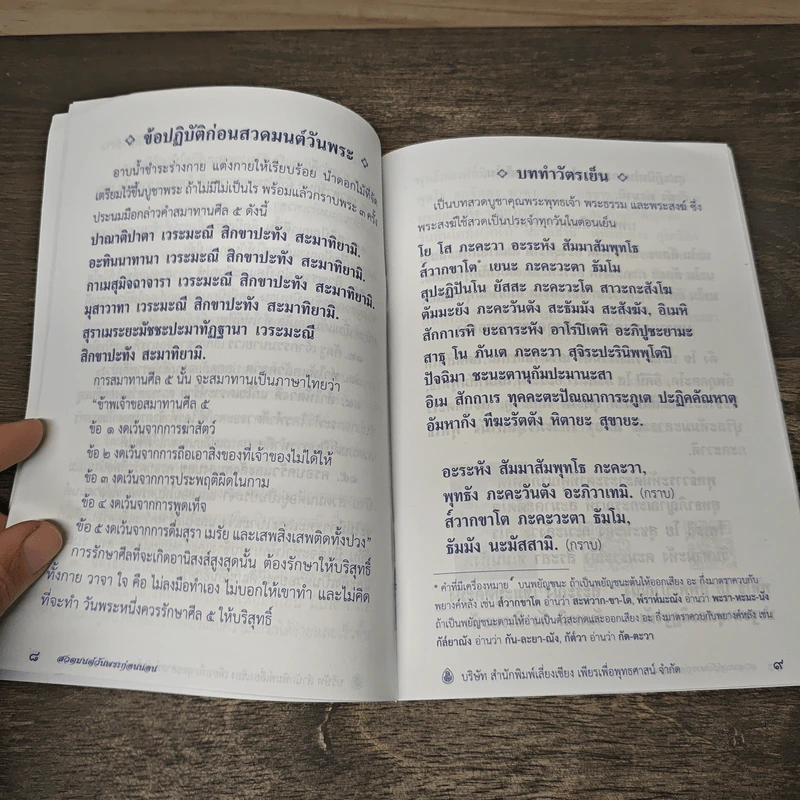 ข้อปฏิบัติก่อนสวดมนต์วันพระ
อาบน้ำชำระร่างกาย แต่งกายให้เรียบร้อย นำดอกไม้ที่จัด
เตรียมไว้ขึ้นบูชาพระ ถ้าไม่มีไม่เป็นไร พร้อมแล้วกราบพระ ๓ ครั้ง
ประนมมือกล่าวคำสมาทานศีล ๕ ดังนี้
ปาณาติปาตา เวระมะณี สิกขาปะทัง สะมาทิยามิ.
อะทินนาทานา เวระมะณี สิกขาปะทัง สะมาทิยามิ.
กาเมสุมิจฉาจารา เวระมะณี สิกขาปะทัง สะมาทิยามิ.
มุสาวาทา เวระมะณี สิกขาปะทัง สะมาทิยามิ.
สุราเมระยะมัชชะปะมาทัฏฐานา เวระมะณี
สิกขาปะทัง สะมาทิยามิ.
การสมาทานศีล ๕ นั้น จะสมาทานเป็นภาษาไทยว่า
“ข้าพเจ้าขอสมาทานศีล ๕
ข้อ ๑ งดเว้นจากการฆ่าสัตว์
ข้อ ๒ งดเว้นจากการถือเอาสิ่งของที่เจ้าของไม่ได้ให้
ข้อ ๓ งดเว้นจากการประพฤติผิดในกาม
ข้อ ๔ งดเว้นจากการพูดเท็จ
ข้อ ๕ งดเว้นจากการดื่มสุรา เมรัย และเสพสิ่งเสพติดทั้งปวง”
การรักษาศีลที่จะเกิดอานิสงส์สูงสุดนั้น ต้องรักษาให้บริสุทธิ์
ทั้งกาย วาจา ใจ คือ ไม่ลงมือทำเอง ไม่บอกให้เขาทำ และไม่คิด
ที่จะทำ วันพระหนึ่งควรรักษาศีล ๕ ให้บริสุทธิ์
๘ สวดมนต์วันพระก่อนนอน
บททำวัตรเย็น
เป็นบทสวดบูชาคุณพระพุทธเจ้า พระธรรม และพระสงฆ์ ซึ่ง
พระสงฆ์ใช้สวดเป็นประจำทุกวันในตอนเย็น
โย โส ภะคะวา อะระหัง สัมมาสัมพุทโธ
ส๎วากขาโต* เยนะ ภะคะวะตา ธัมโม
สุปะฏิปันโน ยัสสะ ภะคะวะโต สาวะกะสังโฆ
ตัมมะยัง ภะคะวันตัง สะธัมมัง สะสังฆัง, อิเมหิ
สักกาเรหิ ยะถาระหัง อาโรปิเตหิ อะภิปูชะยามะ
สาธุ โน ภันเต ภะคะวา สุจิระปะรินิพพุโตปิ
ปัจฉิมา ชะนะตานุกัมปะมานะสา
อิเม สักกาเร ทุคคะตะปัณณาการะภูเต ปะฏิคคัณหาตุ
อัมหากัง ทีฆะรัตตัง หิตายะ สุขายะ.
อะระหัง สัมมาสัมพุทโธ ภะคะวา,
พุทธัง ภะคะวันตัง อะภิวาเทมิ. (กราบ)
ส๎วากขาโต ภะคะวะตา ธัมโม,
ธัมมัง นะมัสสามิ. (กราบ)
* คำที่มีเครื่องหมาย ๎ บนพยัญชนะ ถ้าเป็นพยัญชนะต้นให้ออกเสียง อะ กึ่งมาตราควบกับ
พยางค์หลัง เช่น ส๎วากขาโต อ่านว่า สะหวาก-ขา-โต, พ๎ราห๎มะณัง อ่านว่า พะรา-หะมะ-นัง
ถ้าเป็นพยัญชนะตามให้อ่านเป็นตัวสะกดและออกเสียง อะ กึ่งมาตราควบกับพยางค์หลัง เช่น
กัล๎ยาณัง อ่านว่า กัน-ละยา-ณัง, กัต๎วา อ่านว่า กัด-ตะวา
บริษัท สำนักพิมพ์เลี่ยงเชียง เพียรเพื่อพุทธศาสน์ จำกัด ๙